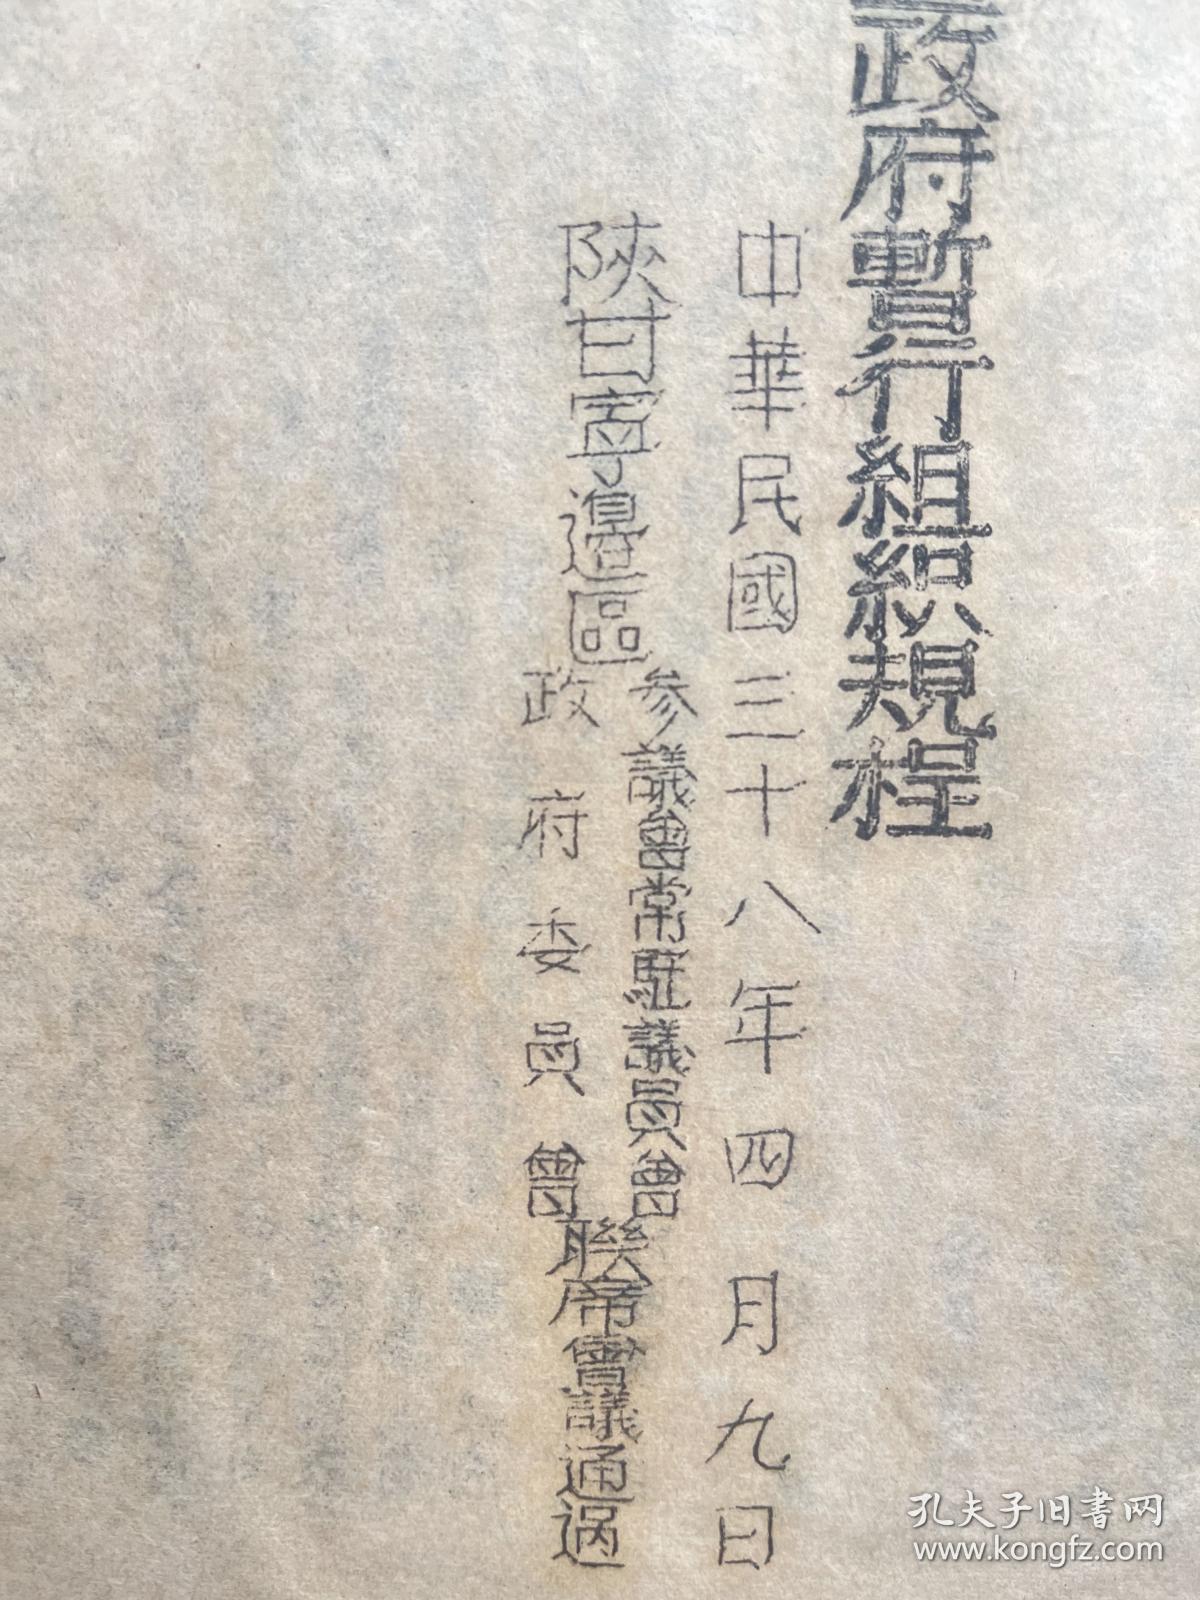 政府暫行組织規程
中華民國三十八年四月九日
陝甘寧邊區
参議會常駐議員會
政府委員會
聯席會議通过
孔夫子旧書网
www.kongfz.com